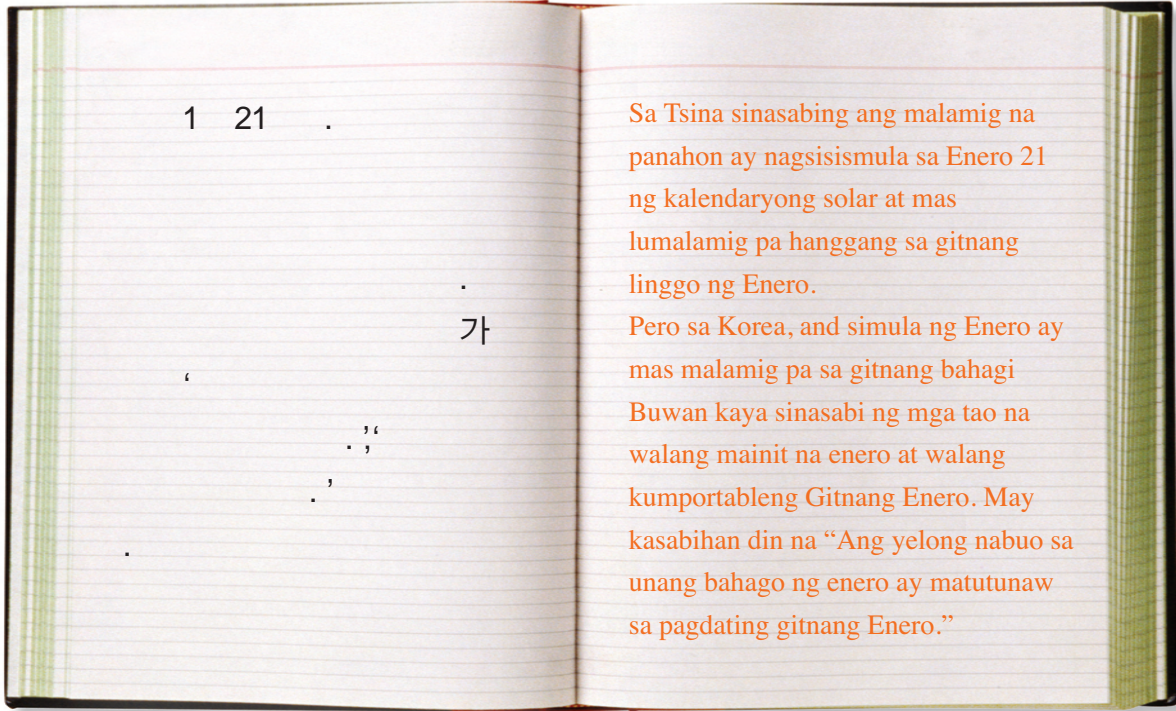 1 21 .
.
가
‘
. ’,‘
. ’
.
Sa Tsina sinasabing ang malamig na
panahon ay nagsisismula sa Enero 21
ng kalendaryong solar at mas
lumalamig pa hanggang sa gitnang
linggo ng Enero.
Pero sa Korea, and simula ng Enero ay
mas malamig pa sa gitnang bahagi
Buwan kaya sinasabi ng mga tao na
walang mainit na enero at walang
kumportableng Gitnang Enero. May
kasabihan din na “Ang yelong nabuo sa
unang bahago ng enero ay matutunaw
sa pagdating gitnang Enero.”